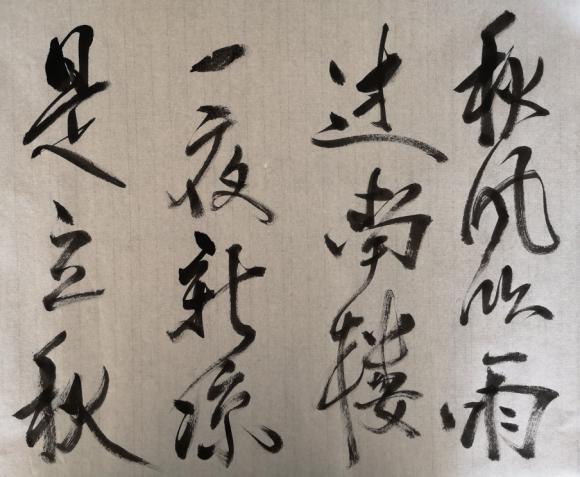 秋风吹雨
过南楼
一夜新凉
是立秋